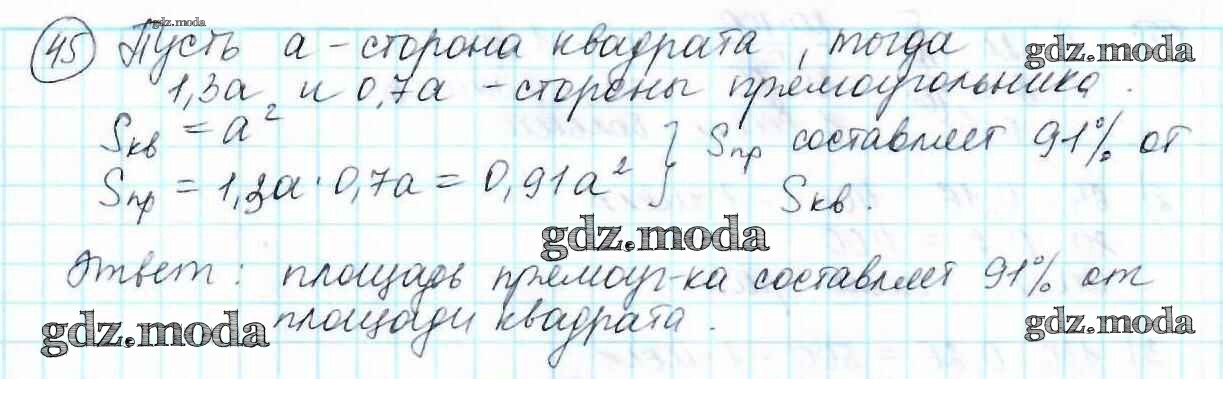 gdz.moda
45 Пусть a - сторона квадрата, тогда
gdz.moda
1,3a и 0,7a - стороны прямоугольника.
Sкв = a²
Sпр = 1,3a · 0,7a = 0,91a² } Sпр составляет 91% от
Sкв.
gdz.moda
Ответ: площадь прямоуг-ка составляет 91% от
площади квадрата.
gdz.moda
gdz.moda